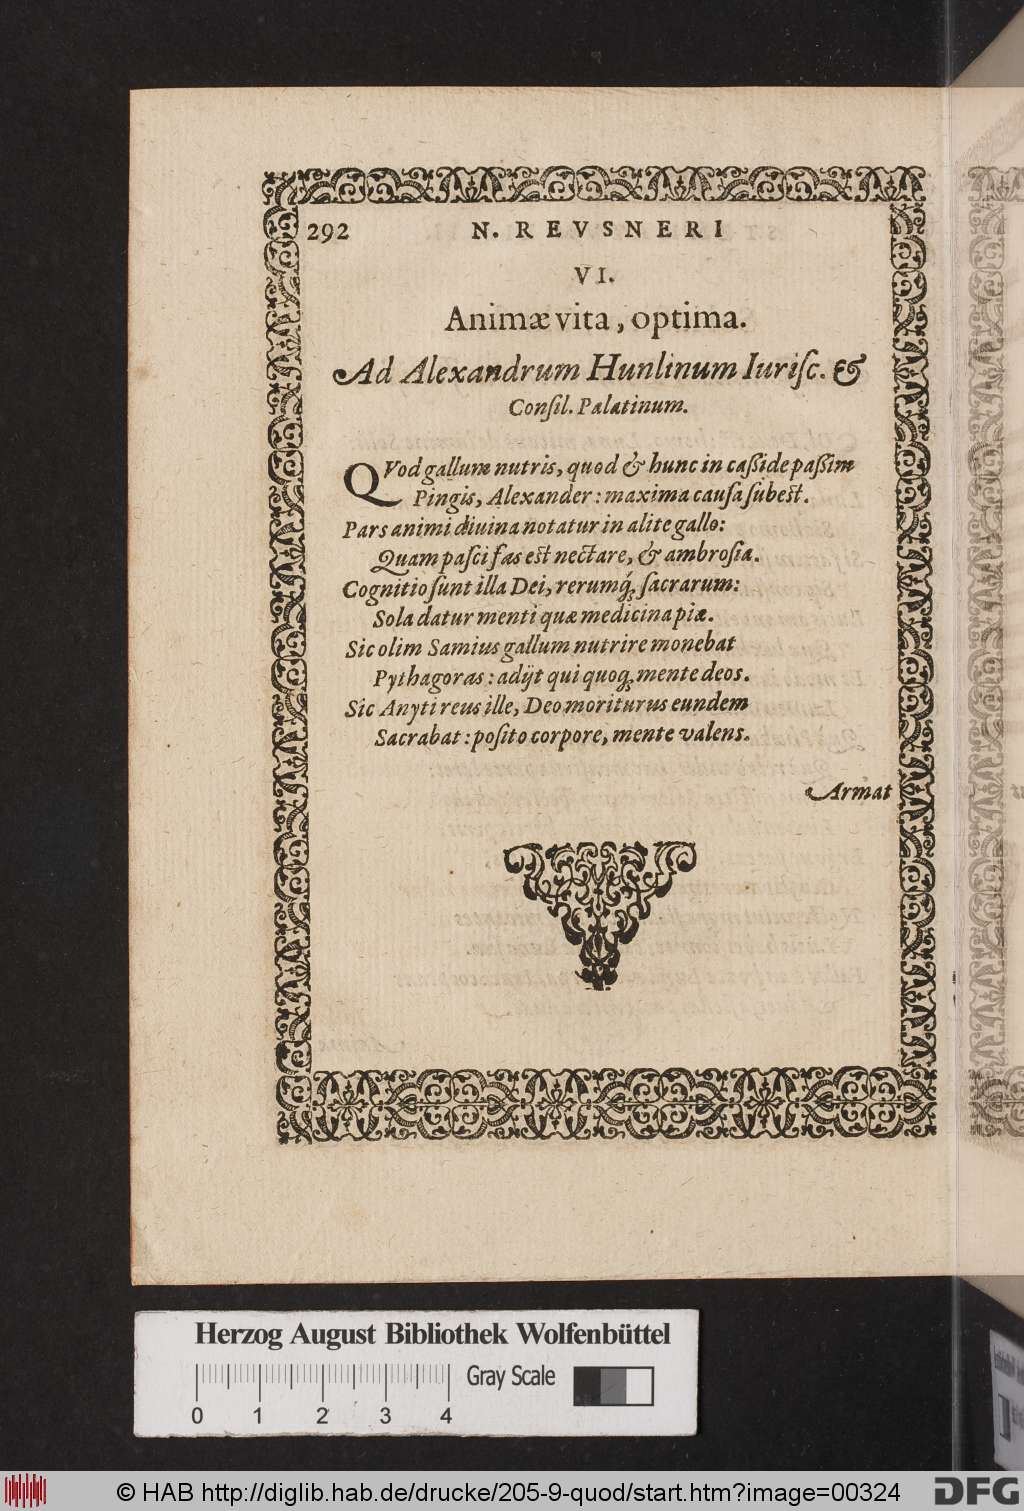 292 N. REVSNERI
VI.
Animæ vita, optima.
Ad Alexandrum Hunlinum Iuriſc. &
Conſil. Palatinum.
QVod gallum nutris, quod & hunc in caßide paßim
Pingis, Alexander: maxima cauſa ſubest.
Pars animi diuina notatur in alite gallo:
Quam paſci fas est nectare, & ambroſia.
Cognitio ſunt illa Dei, rerumq́; ſacrarum:
Sola datur menti quæ medicina piæ.
Sic olim Samius gallum nutrire monebat
Pythagoras: adijt qui quoq; mente deos.
Sic Anyti reus ille, Deo moriturus eundem
Sacrabat: poſito corpore, mente valens.
Armat
Herzog August Bibliothek Wolfenbüttel
Gray Scale
0 1 2 3 4
© HAB http://diglib.hab.de/drucke/205-9-quod/start.htm?image=00324
DFG